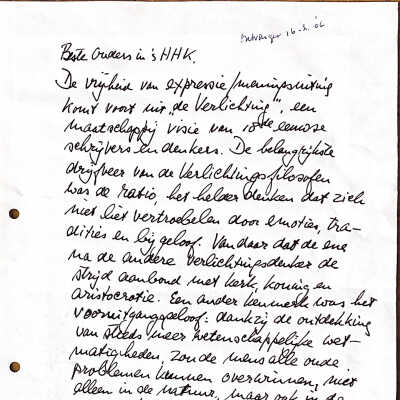 Antwerpen 16-3-06
Beste Ouders in 's HHK,
De vrijheid van expressie/meningsuiting
komt voort uit "de Verlichting", een
maatschappij visie van 18de eeuwse
schrijvers en denkers. De belangrijkste
drijfveer van de Verlichtingsfilosofen
was de ratio, het helder denken dat zich
niet liet vertroebelen door emoties, tra-
dities en bijgeloof. Vandaar dat de ene
na de andere verlichtingsdenker de
strijd aanbond met kerk, koning en
aristocratie. Een ander kenmerk was het
vooruitgangsgeloof: dankzij de ontdekking
van steeds meer wetenschappelijke wet-
matigheden, zou de mens alle oude
problemen kunnen overwinnen, niet
alleen in de natuur, maar ook in de